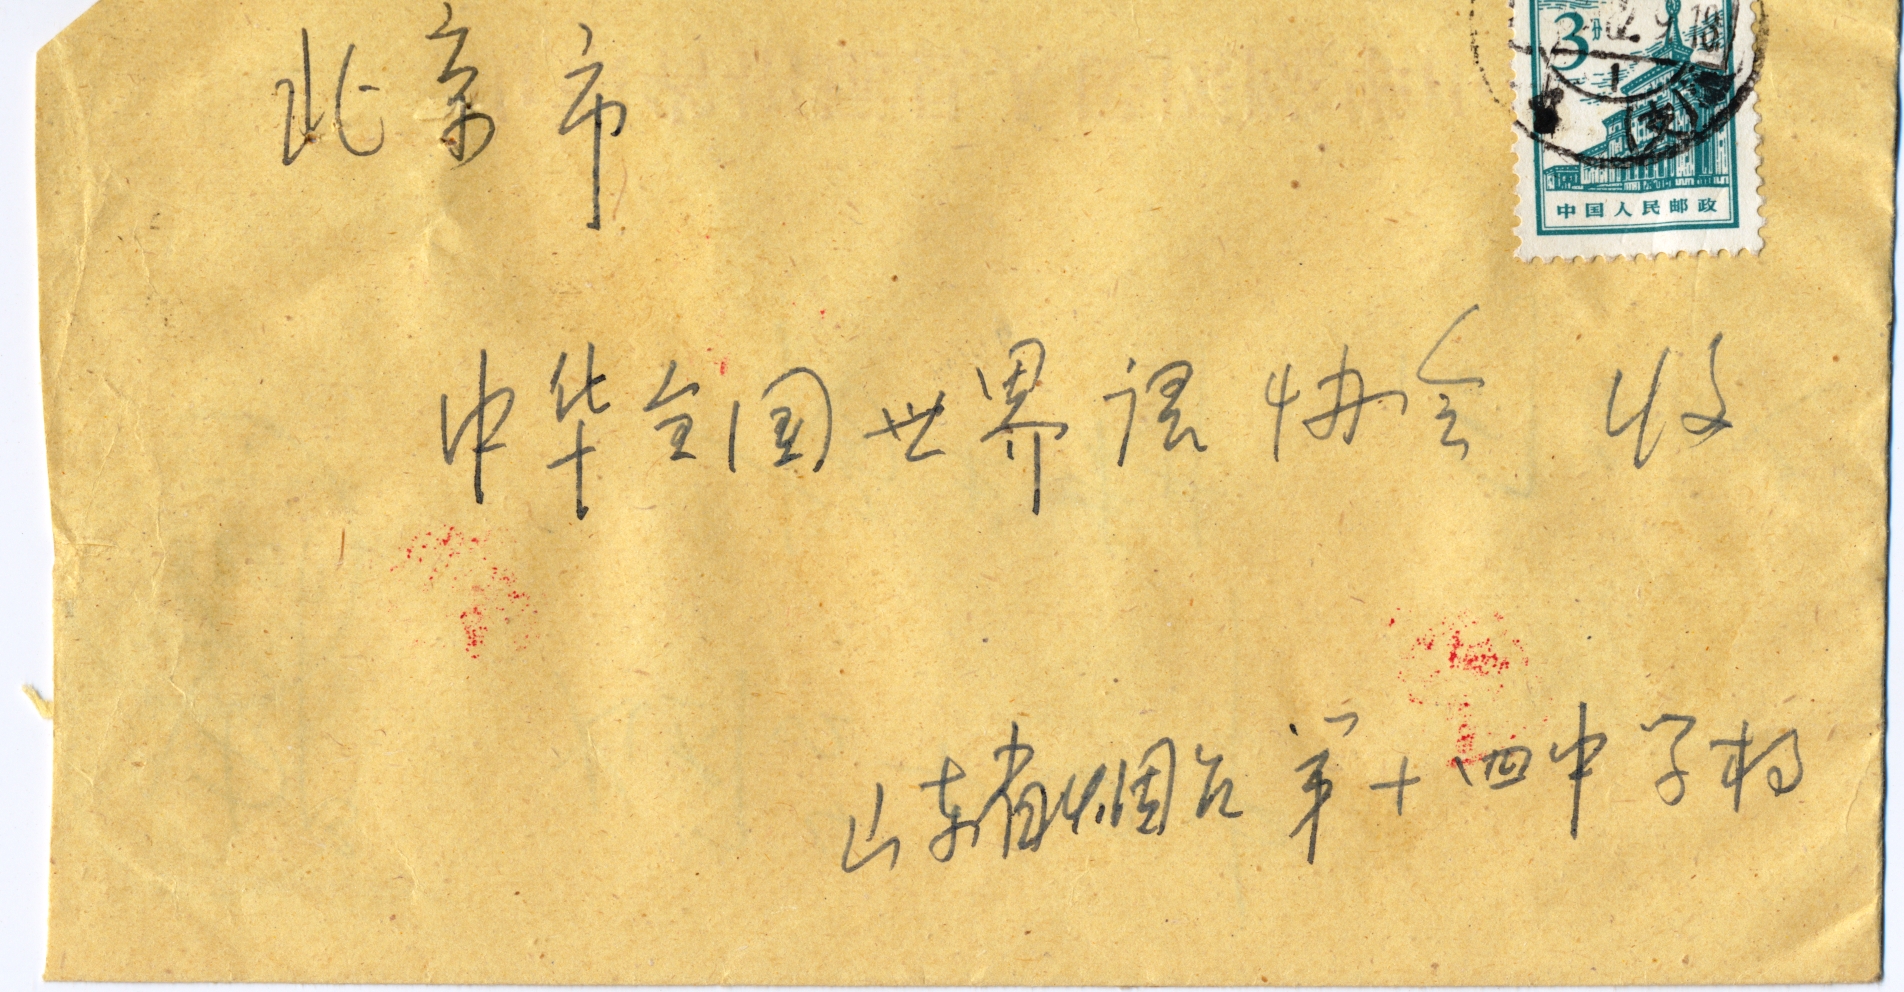 北京市
3分
2.9.18
1
(支)
中国人民邮政
中华全国世界语协会 收
山东省烟台第十四中学校